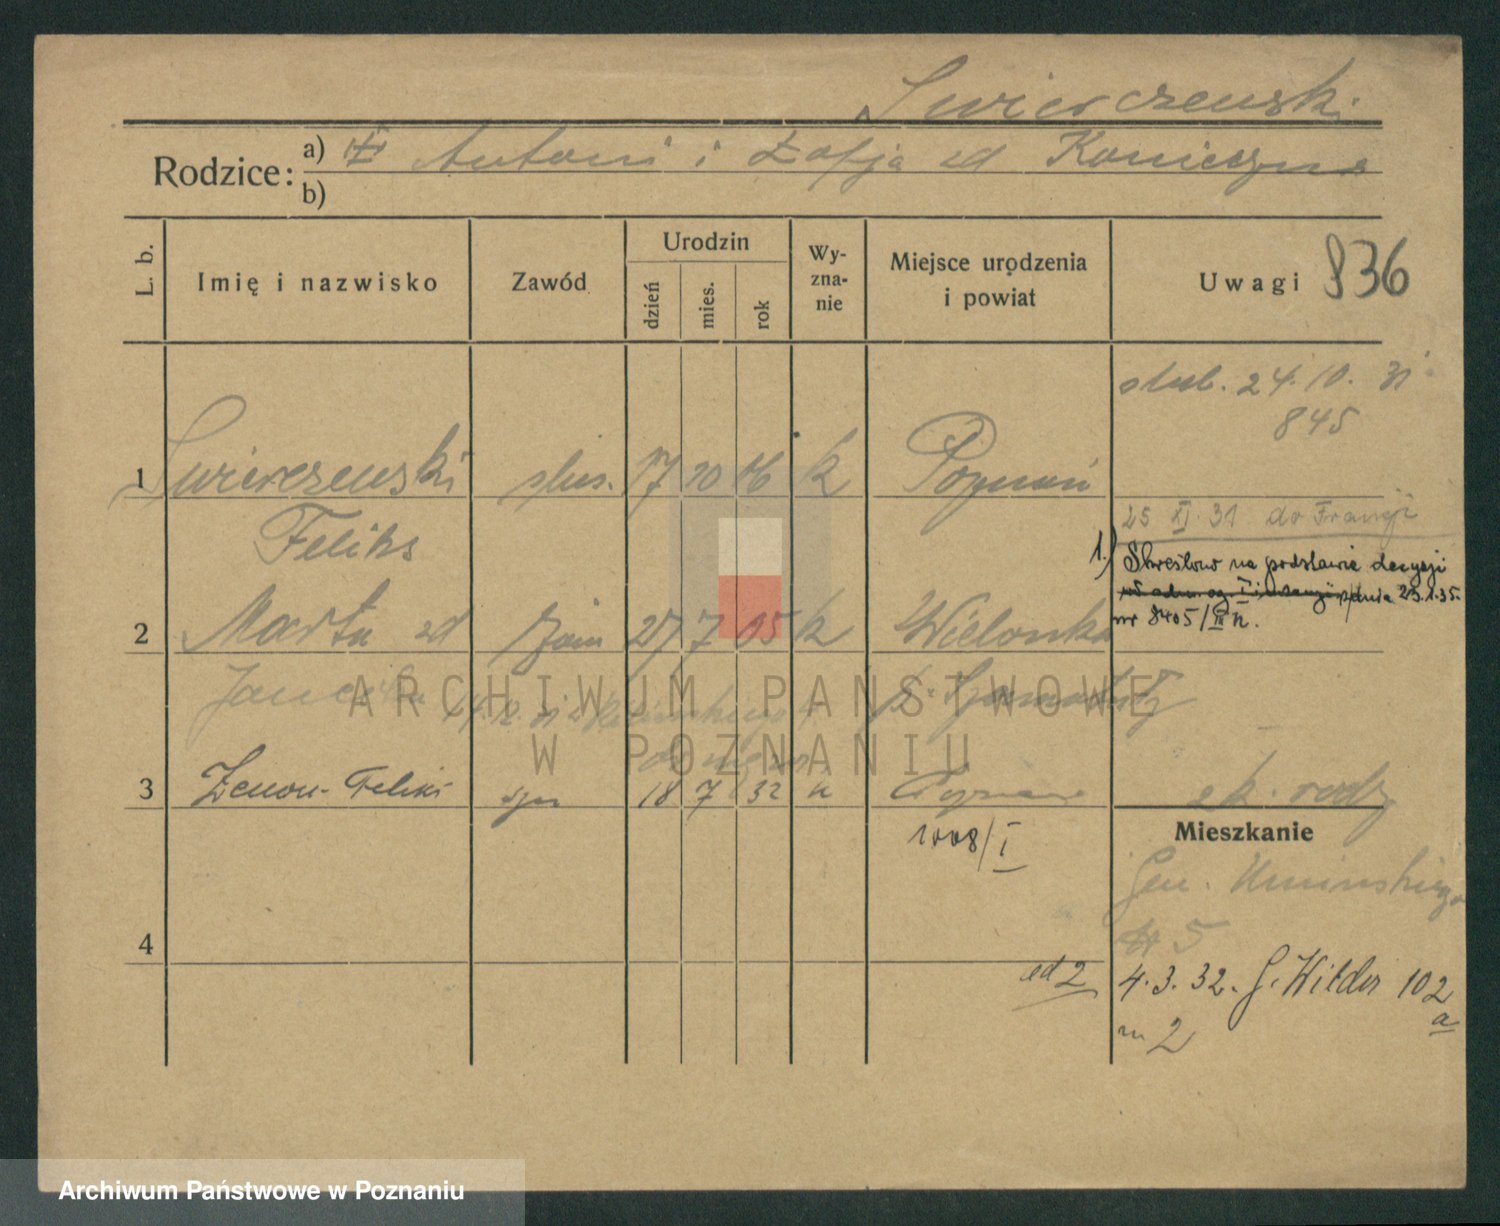 Swierczewski
Rodzice:
a) Antoni i Zofja zd Konieczna
b)
L. b.
Imię i nazwisko
Zawód
Urodzin
dzień
mies.
rok
Wy-
zna-
nie
Miejsce urodzenia
i powiat
Uwagi 836
ślub. 24.10. 31
845
1 Swierczewski ślus. 17 10 06 k Poznań
Feliks
25 XI. 31 do Francji
1.) Skreślono na podstawie decyzji
z dnia 23.1.35.
nr 8405/III k.
2 Marta zd żona 27 7 05 k Wielonka
p. Szamotuły
ARCHIWUM PAŃSTWOWE
W POZNANIU
3 Zenon-Feliks syn 18 7 32 k Poznań
1008/I
Mieszkanie
Gen. Umińskiego
5
4
ad 2
4.3.32. G. Wilda 102
a
m 2
Archiwum Państwowe w Poznaniu